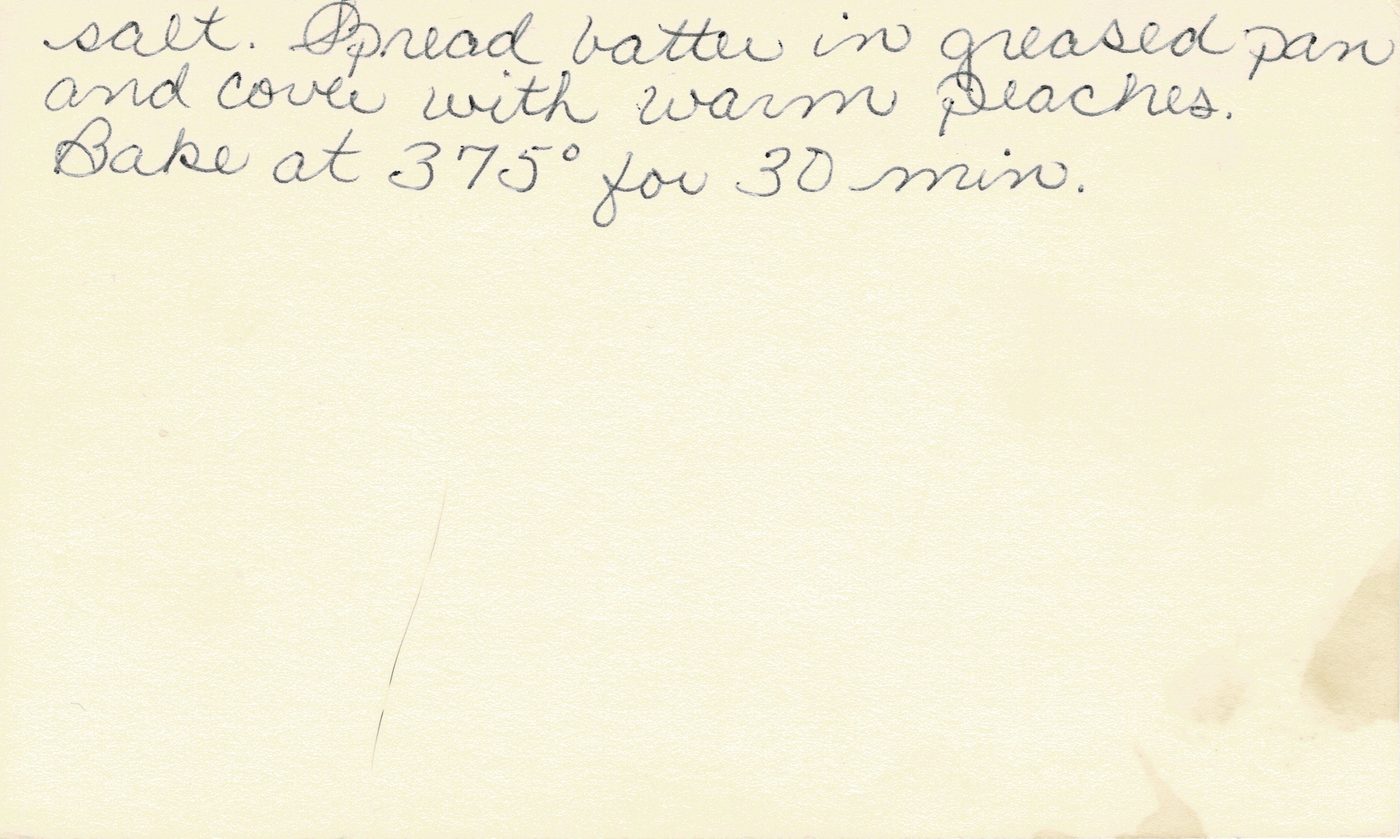 salt. Spread batter in greased pan
and cover with warm peaches.
Bake at 375° for 30 min.